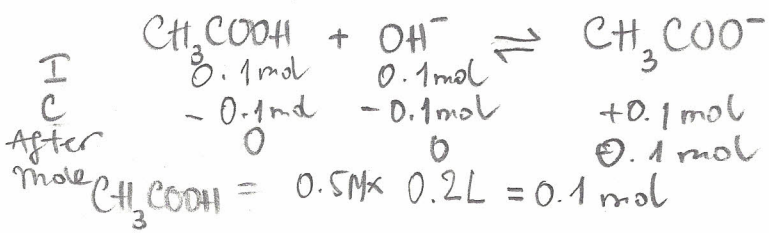 CH₃COOH + OH⁻ ⇌ CH₃COO⁻
I 0.1mol 0.1mol
C - 0.1mol - 0.1mol +0.1 mol
After 0 0 0.1 mol
mole CH₃COOH = 0.5M× 0.2L = 0.1 mol